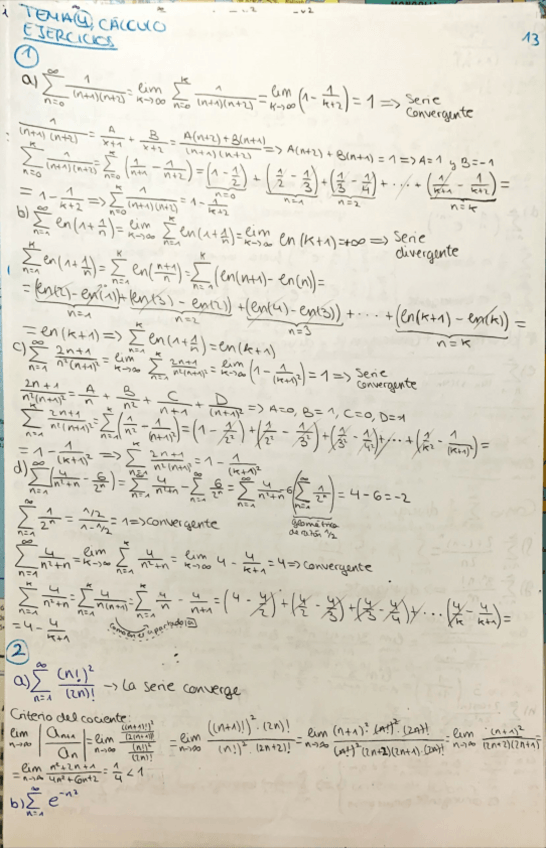 TEMA 4 CÁLCULO
EJERCICIOS
13
1
a) ∑_{n=0}^{∞} 1/((n+1)(n+2)) = lim_{k→∞} ∑_{n=0}^{k} 1/((n+1)(n+2)) = lim_{k→∞} (1 - 1/(k+2)) = 1 => Serie convergente
1/((n+1)(n+2)) = A/(x+1) + B/(x+2) = (A(n+2)+B(n+1))/((n+1)(n+2)) => A(n+2)+B(n+1)=1 => A=1 y B=-1
∑_{n=0}^{k} 1/((n+1)(n+2)) = ∑_{n=0}^{k} (1/(n+1) - 1/(n+2)) = (1 - 1/2) [n=0] + (1/2 - 1/3) [n=1] + (1/3 - 1/4) [n=2] + ... + (1/(k+1) - 1/(k+2)) [n=k] =
= 1 - 1/(k+2) => ∑_{n=0}^{k} 1/((n+1)(n+2)) = 1 - 1/(k+2)
b) ∑_{n=1}^{∞} ln(1+1/n) = lim_{k→∞} ∑_{n=1}^{k} ln(1+1/n) = lim_{k→∞} ln(k+1) = +∞ => Serie divergente
∑_{n=1}^{k} ln(1+1/n) = ∑_{n=1}^{k} ln((n+1)/n) = ∑_{n=1}^{k} (ln(n+1) - ln(n)) =
= (ln(2) - ln(1)) [n=1] + (ln(3) - ln(2)) [n=2] + (ln(4) - ln(3)) [n=3] + ... + (ln(k+1) - ln(k)) [n=k] =
= ln(k+1) => ∑_{n=1}^{k} ln(1+1/n) = ln(k+1)
c) ∑_{n=1}^{∞} (2n+1)/(n²(n+1)²) = lim_{k→∞} ∑_{n=1}^{k} (2n+1)/(n²(n+1)²) = lim_{k→∞} (1 - 1/(k+1)²) = 1 => Serie convergente
(2n+1)/(n²(n+1)²) = A/n + B/n² + C/(n+1) + D/(n+1)² => A=0, B=1, C=0, D=1
∑_{n=1}^{k} (2n+1)/(n²(n+1)²) = ∑_{n=1}^{k} (1/n² - 1/(n+1)²) = (1 - 1/2²) + (1/2² - 1/3²) + (1/3² - 1/4²) + ... + (1/k² - 1/(k+1)²) =
= 1 - 1/(k+1)² => ∑_{n=1}^{k} (2n+1)/(n²(n+1)²) = 1 - 1/(k+1)²
d) ∑_{n=1}^{∞} (4/(n²+n) - 6/2ⁿ) = ∑_{n=1}^{∞} 4/(n²+n) - ∑_{n=1}^{∞} 6/2ⁿ = ∑_{n=1}^{∞} 4/(n²+n) - 6(∑_{n=1}^{∞} 1/2ⁿ) = 4 - 6 = -2
geométrica de razón 1/2
∑_{n=1}^{∞} 1/2ⁿ = (1/2)/(1-1/2) = 1 => convergente
∑_{n=1}^{∞} 4/(n²+n) = lim_{k→∞} ∑_{n=1}^{k} 4/(n²+n) = lim_{k→∞} 4 - 4/(k+1) = 4 => convergente
∑_{n=1}^{k} 4/(n²+n) = ∑_{n=1}^{k} 4/(n(n+1)) = ∑_{n=1}^{k} 4/n - 4/(n+1) = (4 - 4/2) + (4/2 - 4/3) + (4/3 - 4/4) + ... (4/k - 4/(k+1)) =
como en el apartado a
= 4 - 4/(k+1)
2
a) ∑_{n=1}^{∞} (n!)²/(2n)! → La serie converge
Criterio del cociente:
lim_{n→∞} |a_{n+1}/a_n| = lim_{n→∞} (((n+1)!)²/(2(n+1))!)/((n!)²/(2n)!) = lim_{n→∞} (((n+1)!)²·(2n)!)/((n!)²·(2n+2)!) = lim_{n→∞} ((n+1)²·(n!)²·(2n)!)/((n!)²(2n+2)(2n+1)·(2n)!) = lim_{n→∞} (n+1)²/((2n+2)(2n+1))
= lim_{n→∞} (n²+2n+1)/(4n²+6n+2) = 1/4 < 1
b) ∑_{n=1}^{∞} e^{-n²}